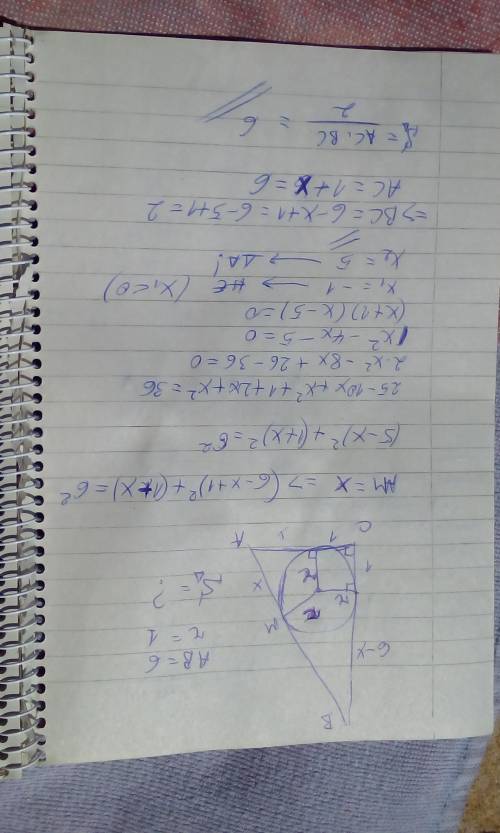 AB = 6
r = 1
S△ = ?
B
6-x
M
x
r
r
r
1
1
C
A
AM = x => (6-x+1)² + (1+x) = 6²
(5-x)² + (1+x)² = 6²
25-10x+x²+1+2x+x² = 36
2.x² - 8x + 26 - 36 = 0
x² - 4x - 5 = 0
(x+1)(x-5) = 0
x₁ = -1 → (x₁<0)
x₂ = 5 → ДА!
=> BC = 6-x+1 = 6-5+1 = 2
AC = 1+x = 6
S△ = AC.BC / 2 = 6